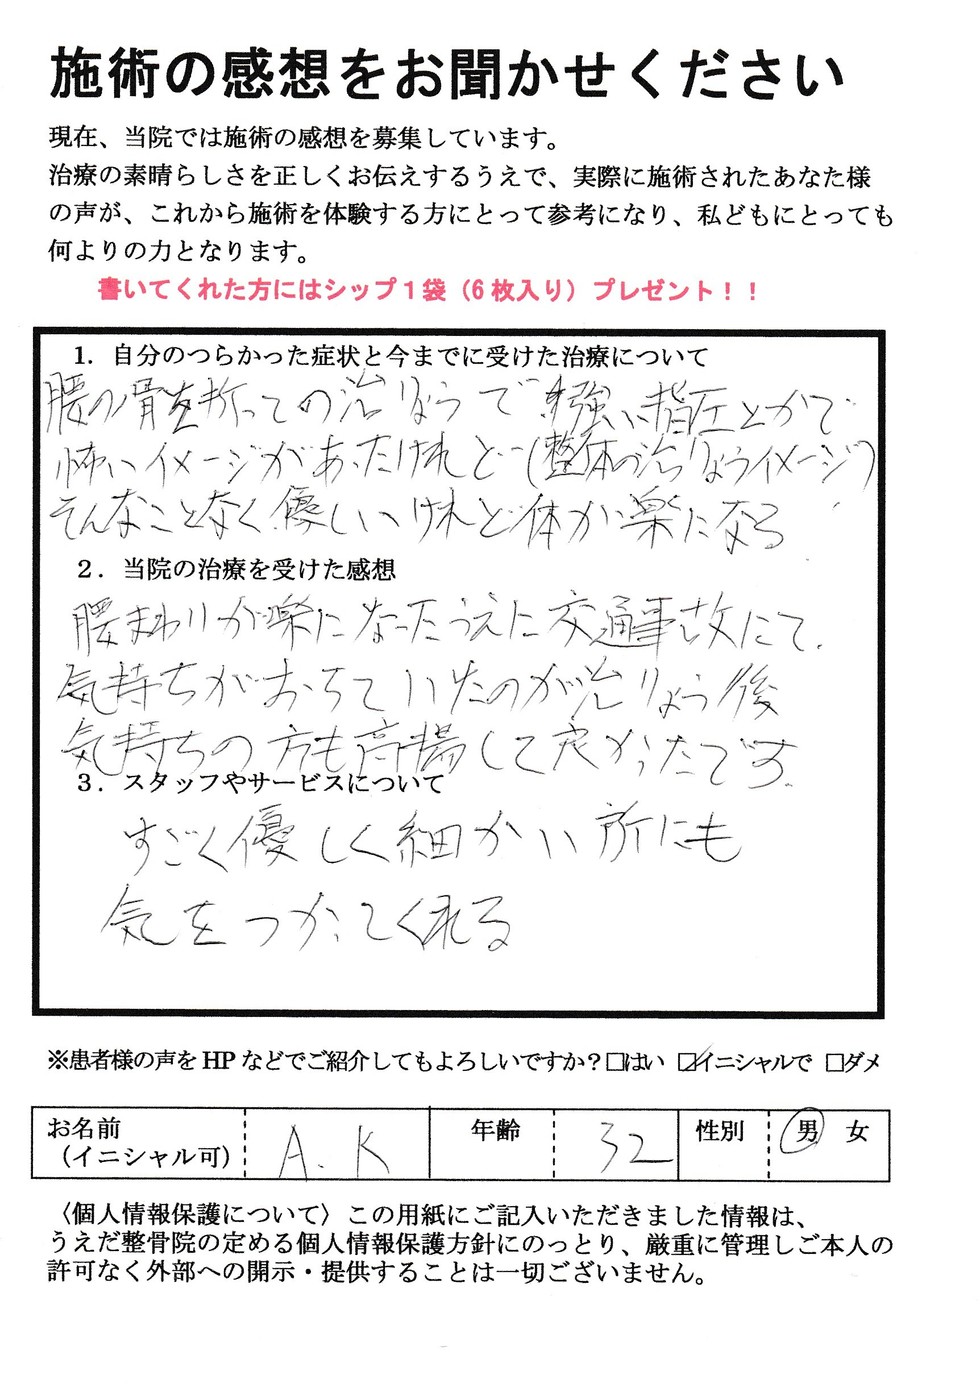 施術の感想をお聞かせください
現在、当院では施術の感想を募集しています。
治療の素晴らしさを正しくお伝えするうえで、実際に施術されたあなた様
の声が、これから施術を体験する方にとって参考になり、私どもにとっても
何よりの力となります。
書いてくれた方にはシップ1袋（6枚入り）プレゼント！！
1．自分のつらかった症状と今までに受けた治療について
腰の骨を折っての治りょうで 強い指圧とかで
怖いイメージがあったけれど（整体の治りょうイメージ）
そんなことなく優しいけれど体が楽になる
2．当院の治療を受けた感想
腰まわりが楽になったうえに交通事故にて、
気持ちがおちていたのが治りょう後
気持ちの方も高揚して良かったです。
3．スタッフやサービスについて
すごく優しく細かい所にも
気をつかってくれる
※患者様の声をHPなどでご紹介してもよろしいですか？□はい ☑イニシャルで □ダメ
お名前
（イニシャル可） A.K 年齢 32 性別 男 女
〈個人情報保護について〉この用紙にご記入いただきました情報は、
うえだ整骨院の定める個人情報保護方針にのっとり、厳重に管理しご本人の
許可なく外部への開示・提供することは一切ございません。